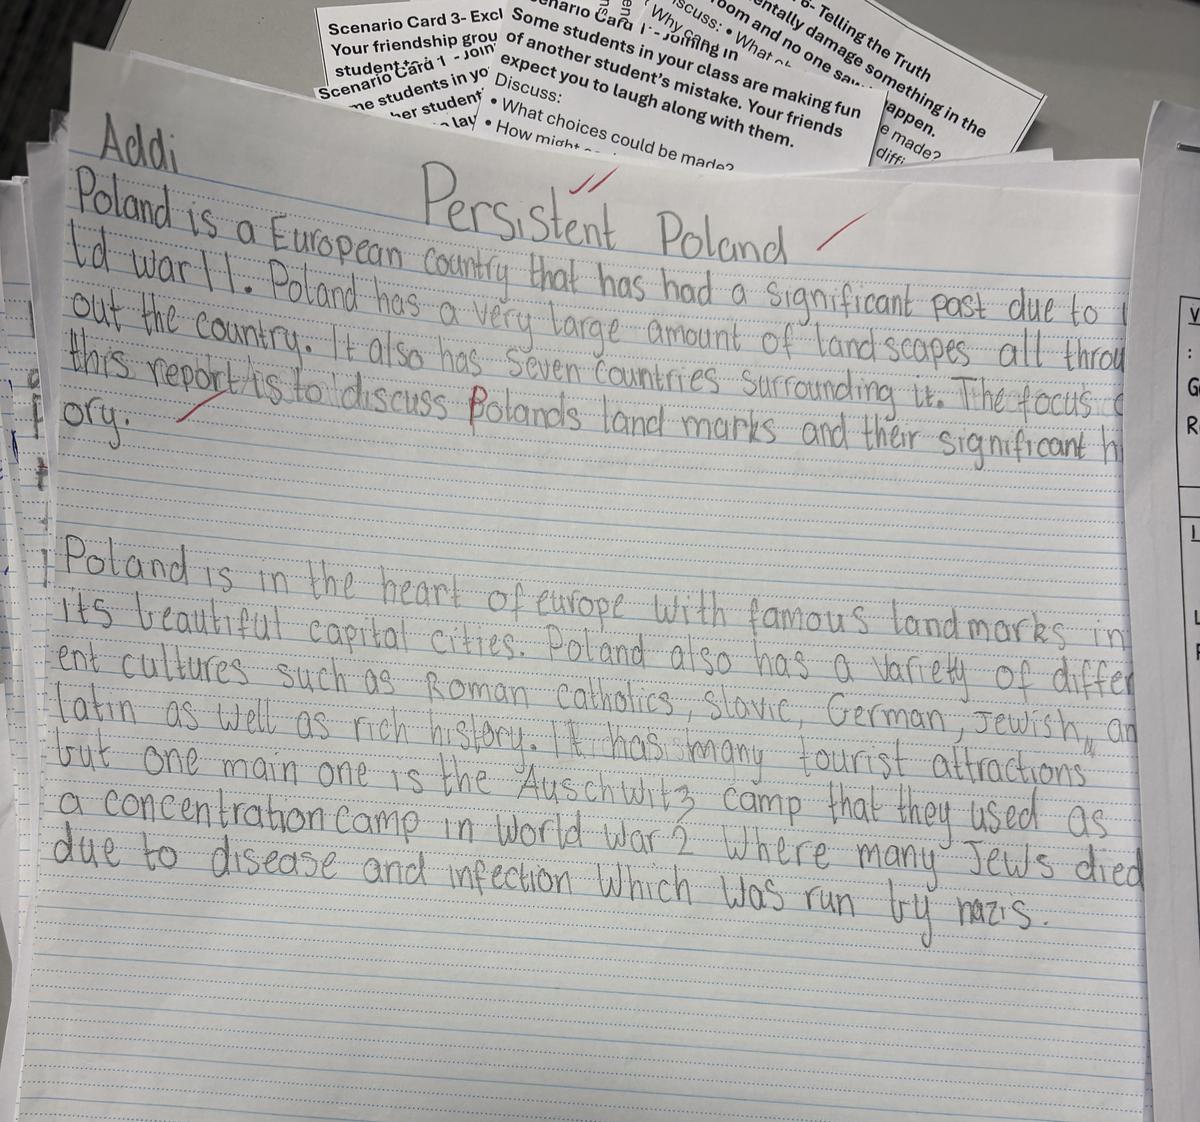 Scenario Card 3- Excl
Your friendship grou
student
Scenario Card 1 - Join
me students in yo
her student'
lay
Scenario Card 1 - Joining in
Some students in your class are making fun
of another student's mistake. Your friends
expect you to laugh along with them.
Discuss:
• What choices could be made?
• How might
Why
iscuss: • What
oom and no one saw
entally damage something in the
6- Telling the Truth
appen.
e made?
diffi
Addi
Persistent Poland
Poland is a European country that has had a significant past due to
ld war 11. Poland has a very large amount of landscapes all throu
out the country. It also has seven countries surrounding it. The focus
this report is to discuss Polands land marks and their significant h
ory.
Poland is in the heart of europe with famous landmarks in
its beautiful capital cities. Poland also has a variety of differ
ent cultures such as Roman catholics, slavic, German, Jewish, an
latin as well as rich history. It has many tourist attractions
but one main one is the Auschwitz camp that they used as
a concentration camp in World War 2 where many Jews died
due to disease and infection which was run by nazis.
V
:
G
R
L
L